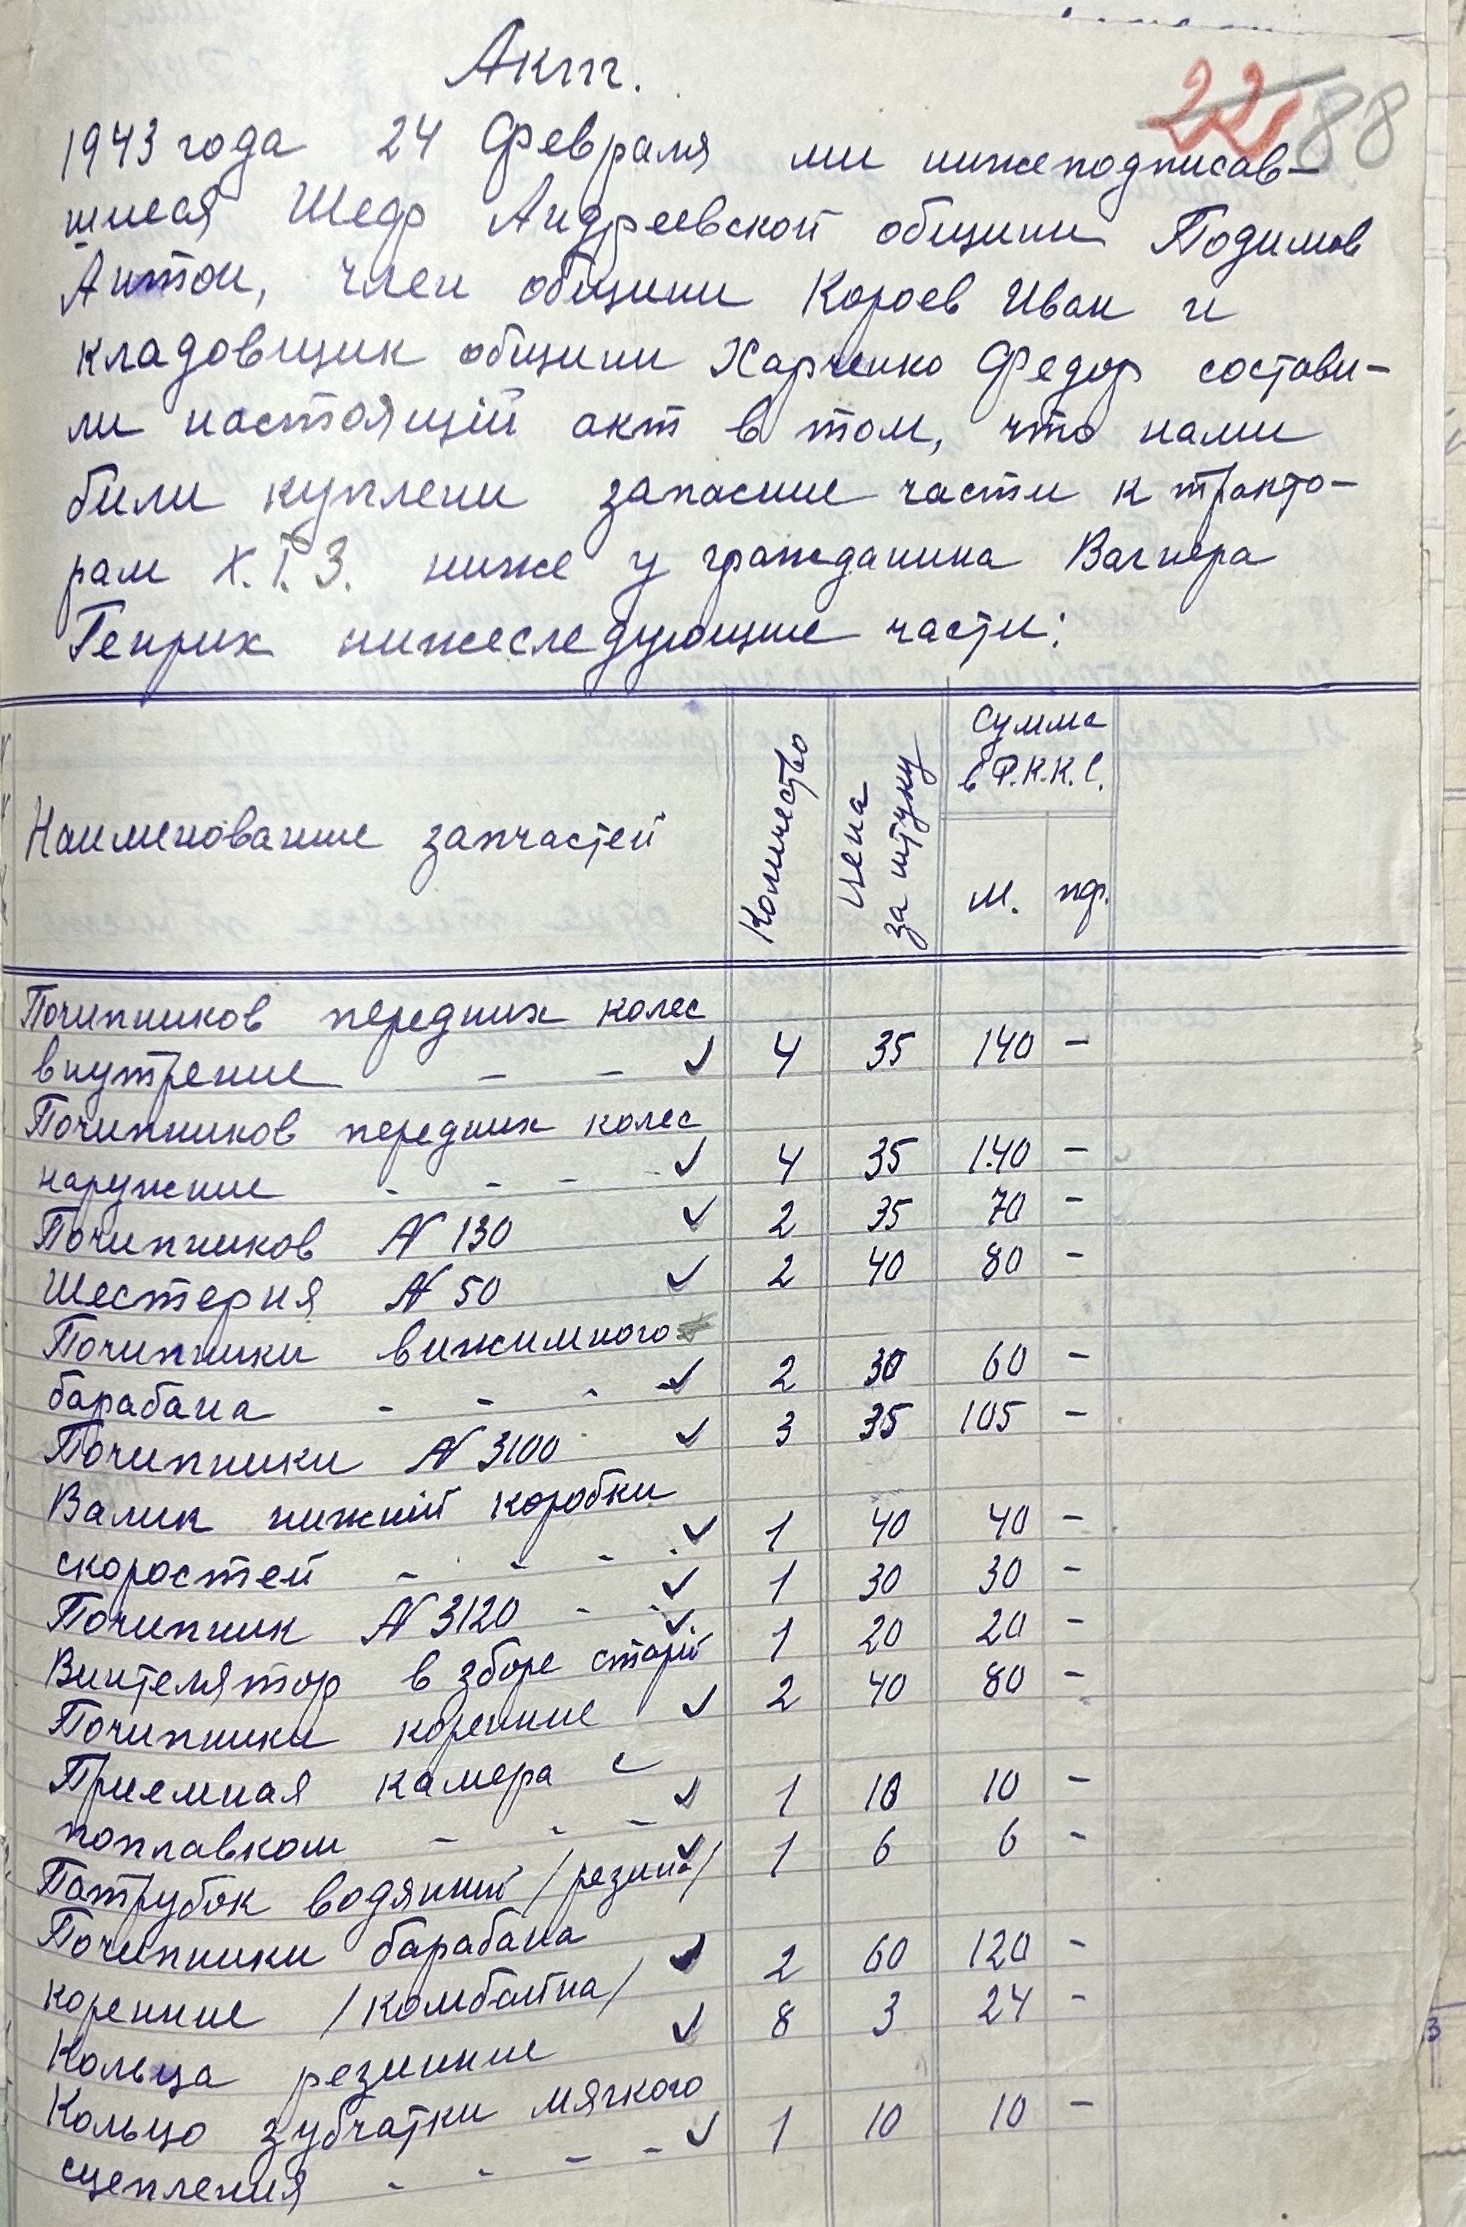 Акт.
22 88
1943 года 24 Февраля ми нижеподписав-
шиеся Шеф Андреевской общини Подимов
Антон, член общини Короев Иван и
кладовщик общини Харченко Федор состави-
ли настоящій акт в том, что нами
били куплени запасние части к тракто-
рам Х.Т.З. ниже у гражданина Вагнера
Генрих нижеследующие части:
Наименование запчастей Количество Цена за штуку Сумма
в Р.К.К.С.
м. пф.
Почипников передних колес
внутрение - - ✓ 4 35 140 -
Почипников передних колес
наружние - - - ✓ 4 35 140 -
Почипников N 130 ✓ 2 35 70 -
Шестерня N 50 ✓ 2 40 80 -
Почипники вижимного
барабана - - - ✓ 2 30 60 -
Почипники N 3100 ✓ 3 35 105 -
Валик нижний коробки
скоростей - - - ✓ 1 40 40 -
Почипник N 3120 - - ✓ 1 30 30 -
Винтелятор в зборе старій ✓ 1 20 20 -
Почипники коренние ✓ 2 40 80 -
Приемная камера с
поплавком - - - ✓ 1 10 10 -
Патрубок водянний /резина/ ✓ 1 6 6 -
Почипники барабана
коренние /комбайна/ ✓ 2 60 120 -
Кольца резинние ✓ 8 3 24 -
Кольцо зубчатки мягкого
сцепления - - - - ✓ 1 10 10 -